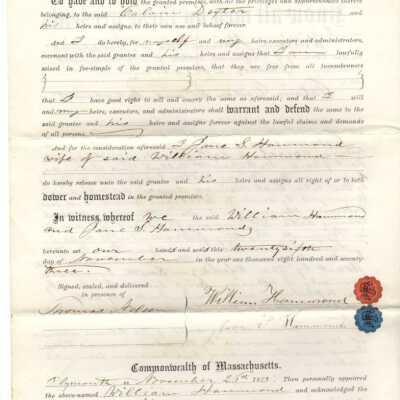 To have and to hold the granted premises, with all the privileges and appurtenances thereto
belonging, to the said Calvin Deyter and
his heirs and assigns, to their own use and behoof forever.
And I do hereby, for myself and my heirs, executors and administrators,
covenant with the said grantee and his heirs and assigns that I am lawfully
seized in fee-simple of the granted premises, that they are free from all incumbrances
that I have good right to sell and convey the same as aforesaid; and that I will
and my heirs, executors, and administrators shall warrant and defend the same to the
said grantee and his heirs and assigns forever against the lawful claims and demands
of all persons
And for the consideration aforesaid I Jane S Hammond
wife of said William Hammond
do hereby release unto the said grantee and his heirs and assigns all right of or to both
dower and homestead in the granted premises.
In witness whereof we the said William Hammond
and Jane S Hammond,
hereunto set our hands and seals this twentysixth
day of November in the year one thousand eight hundred and seventy
three.
Signed, sealed, and delivered
in presence of
Thomas Nelson
William Hammond
Jane S Hammond
Commonwealth of Massachusetts.
Plymouth ss November 26th 1873 Then personally appeared
the above-named William Hammond and acknowledged the